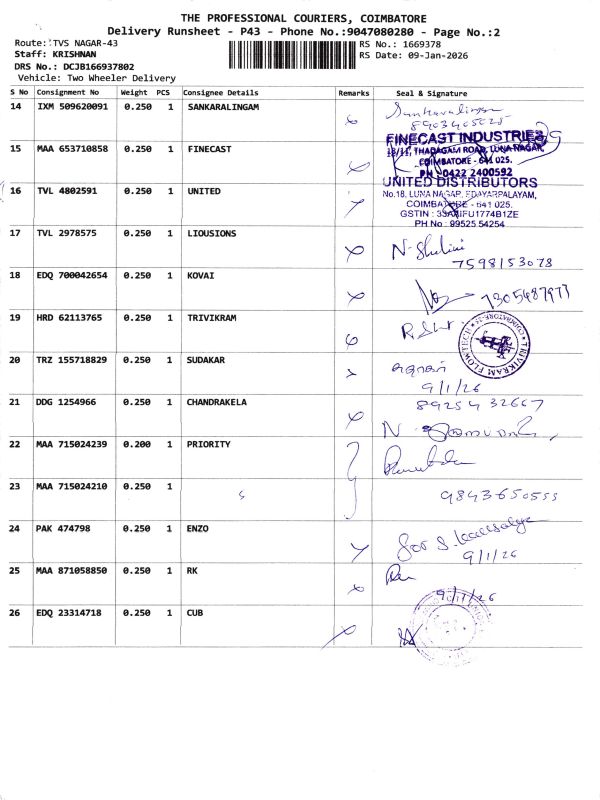 THE PROFESSIONAL COURIERS, COIMBATORE
Delivery Runsheet - P43 - Phone No.:9047080280 - Page No.:2
Route: TVS NAGAR-43
Staff: KRISHNAN
DRS No.: DCJB166937802
Vehicle: Two Wheeler Delivery
RS No.: 1669378
RS Date: 09-Jan-2026
S No Consignment No Weight PCS Consignee Details Remarks Seal & Signature
14 IXM 509620091 0.250 1 SANKARALINGAM Sankaralingam
15 MAA 653710858 0.250 1 FINECAST
FINECAST INDUSTRIES
13/11, THADAGAM ROAD, LUNA NAGAR,
COIMBATORE - 641 025.
PH - 0422 2400592
16 TVL 4802591 0.250 1 UNITED
UNITED DISTRIBUTORS
No.18, LUNA NAGAR, EDAYARPALAYAM,
COIMBATORE - 641 025.
PH No : 99525 54254
17 TVL 2978575 0.250 1 LIOUSIONS N. Shalini
7598153078
18 EDQ 700042654 0.250 1 KOVAI 7305487977
19 HRD 62113765 0.250 1 TRIVIKRAM
TRIVIKRAM FLOWTECH
20 TRZ 155718829 0.250 1 SUDAKAR
9/1/26
21 DDG 1254966 0.250 1 CHANDRAKELA 89254 32667
22 MAA 715024239 0.200 1 PRIORITY
23 MAA 715024210 0.250 1 9843650555
24 PAK 474798 0.250 1 ENZO for S. Kausalya
9/1/26
25 MAA 871058850 0.250 1 RK
9/1/26
26 EDQ 23314718 0.250 1 CUB